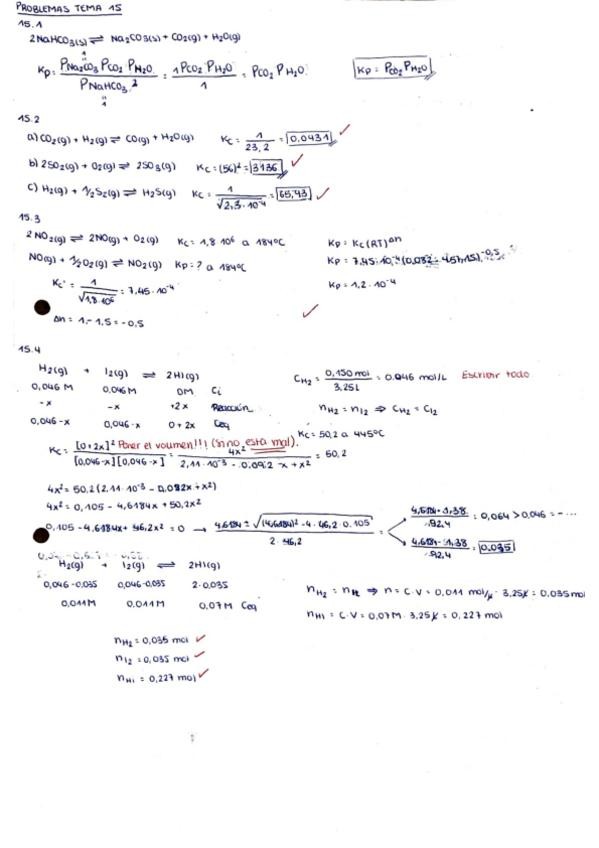 PROBLEMAS TEMA 15
15.1
2NaHCO3(s) ⇌ Na2CO3(s) + CO2(g) + H2O(g)
1
Kp = PNa2CO3 PCO2 PH2O / PNaHCO3² = 1 PCO2 PH2O / 1 = PCO2 PH2O. Kp = PCO2 PH2O
1
15.2
a) CO2(g) + H2(g) ⇌ CO(g) + H2O(g) Kc = 1 / 23,2 = 0,0431 ✓
b) 2SO2(g) + O2(g) ⇌ 2SO3(g) Kc = (56)² = 3136 ✓
c) H2(g) + 1/2 S2(g) ⇌ H2S(g) Kc = 1 / √2,3·10⁻⁴ = 65,93 ✓
15.3
2NO2(g) ⇌ 2NO(g) + O2(g) Kc = 1,8·10⁶ a 184ºC Kp = Kc(RT)^Δn
NO(g) + 1/2 O2(g) ⇌ NO2(g) Kp = ? a 184ºC Kp = 7,45·10⁻⁴ (0,082 · 457,15)^-0,5
Kc' = 1 / √1,8·10⁶ = 7,45·10⁻⁴ Kp = 1,2·10⁻⁴
Δn = 1 - 1,5 = -0,5 ✓
15.4
H2(g) + I2(g) ⇌ 2HI(g) CH2 = 0,150 mol / 3,25L = 0,046 mol/L Escribir todo
0,046 M 0,046 M 0M Ci
-x -x +2x Reacción nH2 = nI2 ⇒ CH2 = CI2
0,046-x 0,046-x 0+2x Ceq Kc = 50,2 a 445ºC
Kc = [0+2x]² / [0,046-x][0,046-x] Poner el volumen!!! (si no está mal). = 4x² / 2,11·10⁻³ - 0,092·x + x² = 50,2
4x² = 50,2(2,11·10⁻³ - 0,092x + x²)
4x² = 0,105 - 4,6184x + 50,2x²
0,105 - 4,6184x + 46,2x² = 0 → 4,6184 ± √(4,6184)² - 4·46,2·0,105 / 2·46,2 =
4,6184+1,38 / 92,4 = 0,064 > 0,046 = - ...
4,6184-1,38 / 92,4 = 0,035
H2(g) + I2(g) ⇌ 2HI(g)
0,046-0,035 0,046-0,035 2·0,035 nH2 = nI2 ⇒ n = C·V = 0,011 mol/L · 3,25L = 0,035 mol
0,011M 0,011M 0,07M Ceq nHI = C·V = 0,07M · 3,25L = 0,227 mol
nH2 = 0,035 mol ✓
nI2 = 0,035 mol ✓
nHI = 0,227 mol ✓